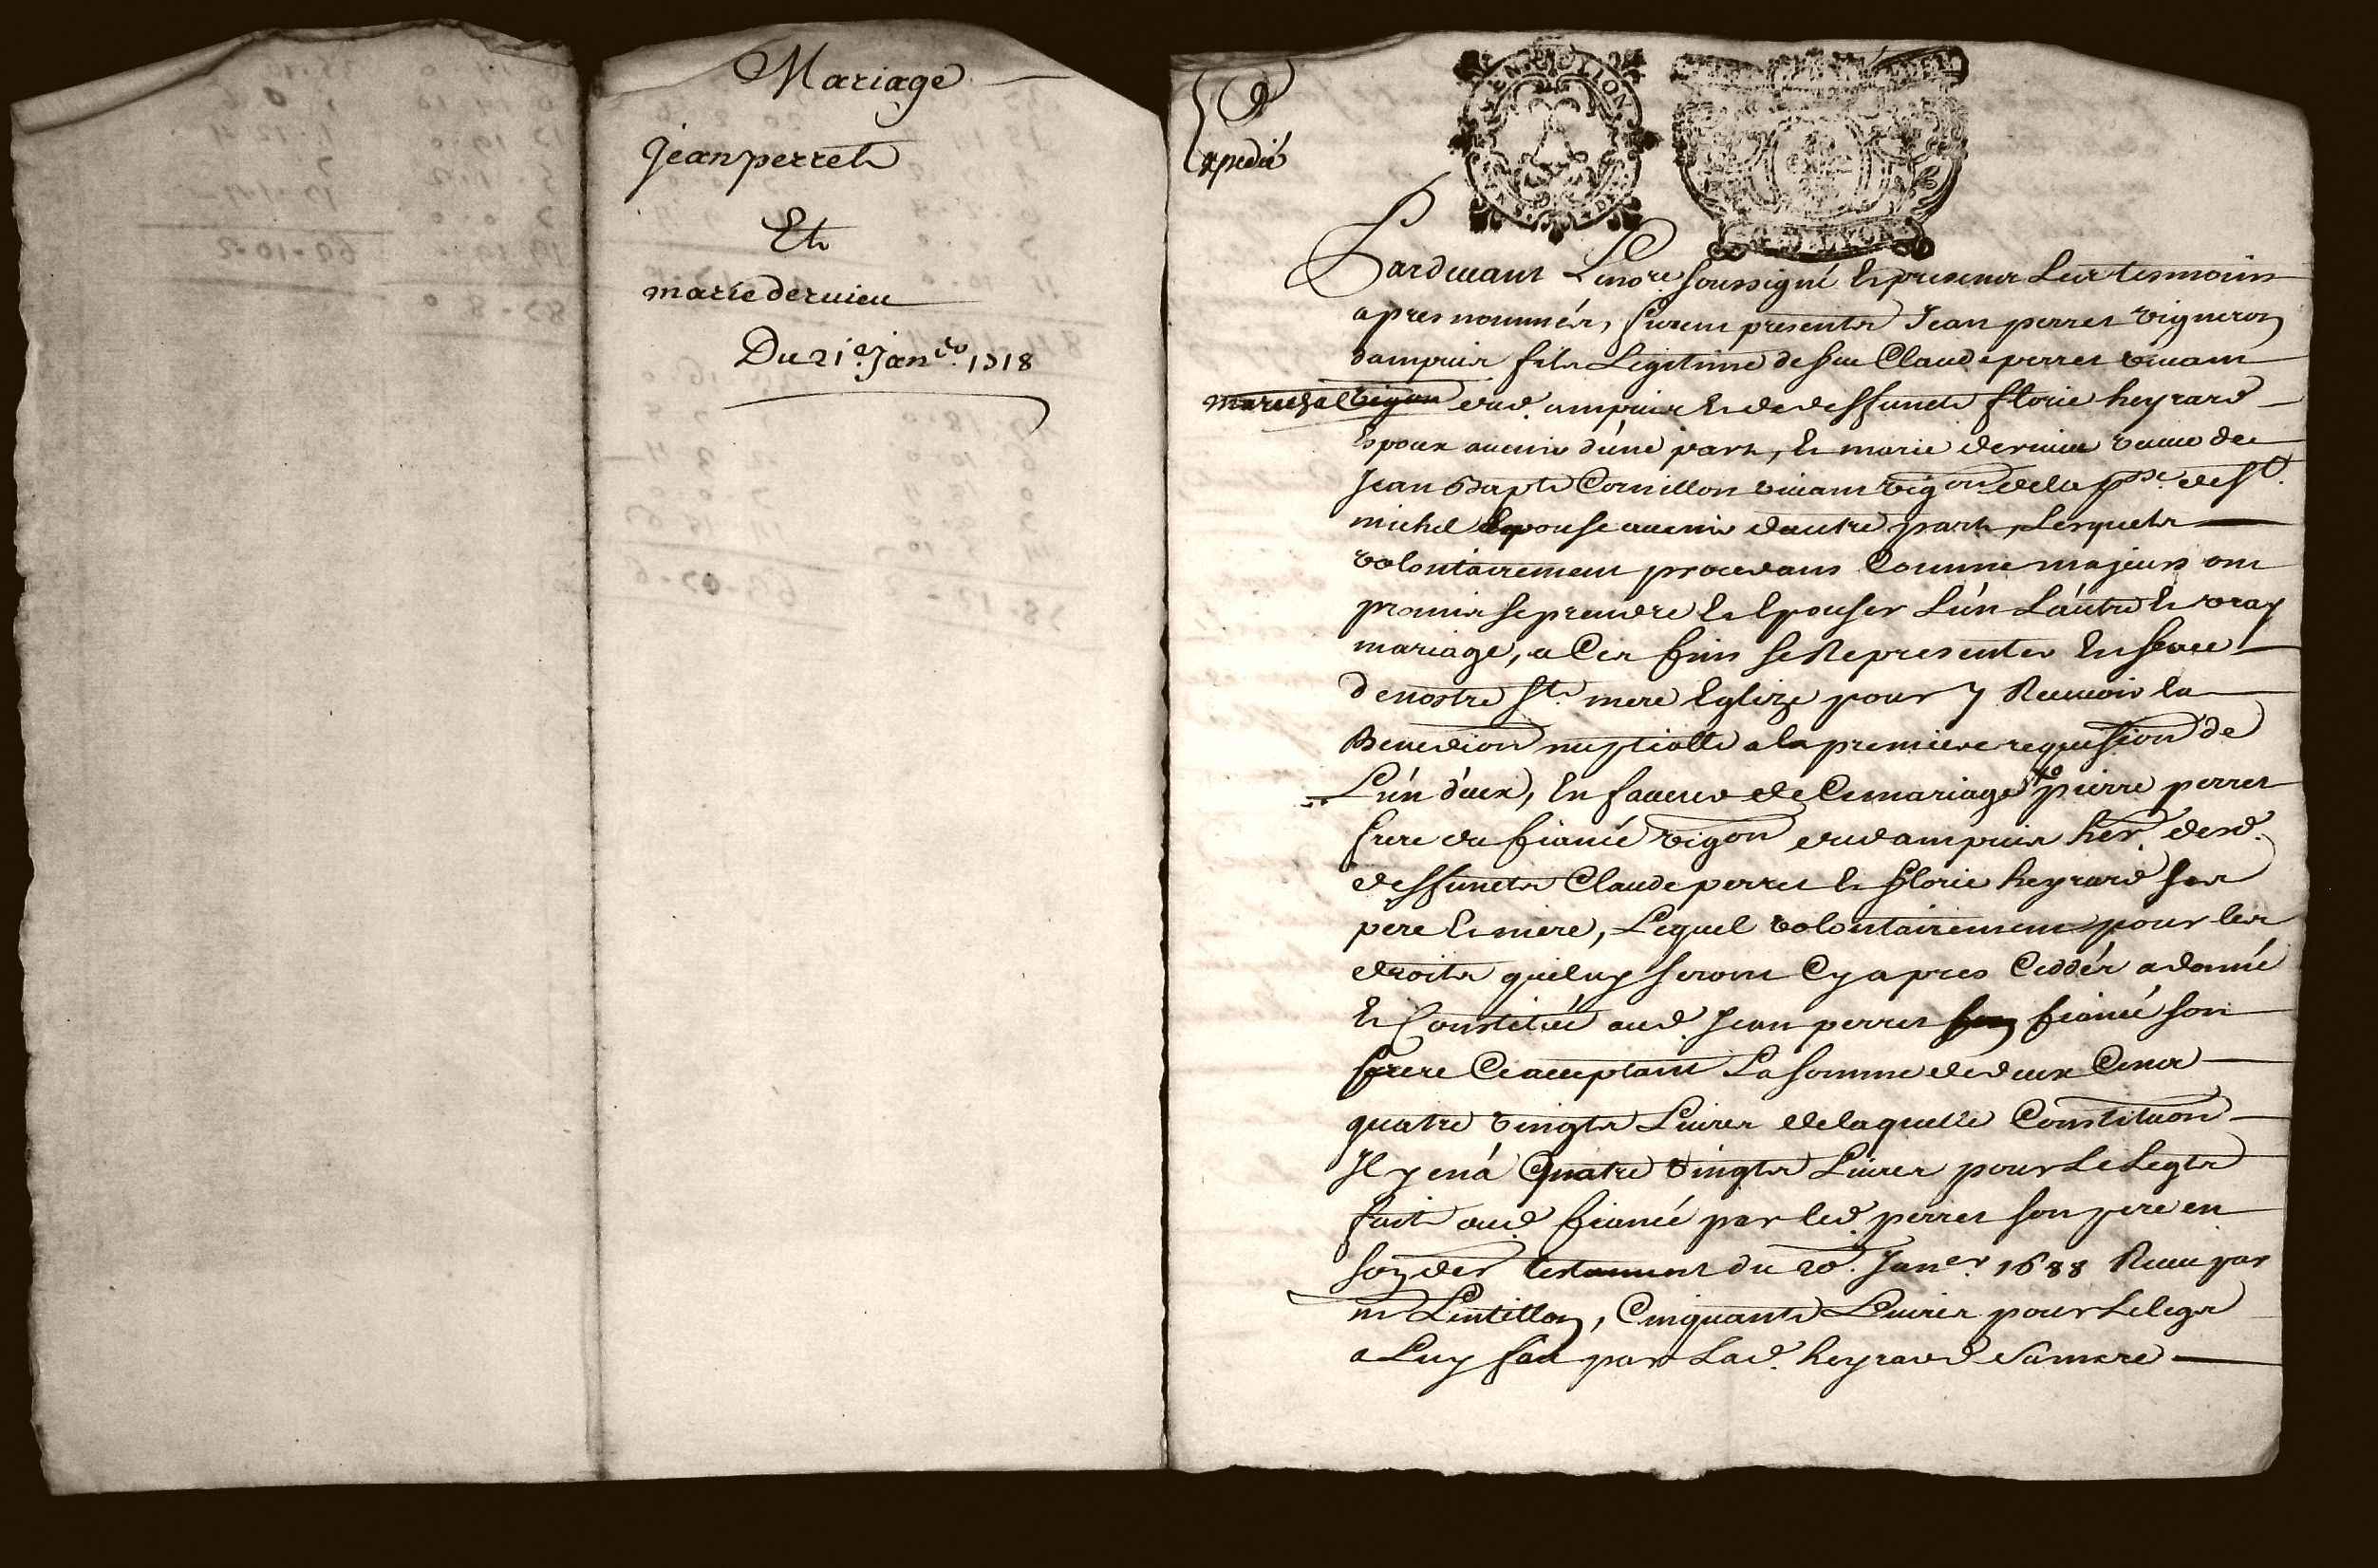 Mariage
Jean perret
Et
marie dervieu
Du 21e Janer 1718
Expedié
Pardevant Le nore soussigné Et presents Les tesmoins
apres nommés, furent presents Jean perret vigneron
dampuis fils Legitime de feu Claude perret vivant
marechal vigon dud. ampuis Et de deffuncte florie heyraud
Epoux avenir d'une part, Et marie dervieu veuve de
Jean Bapte Cornillon vivant vigon de la psse de St.
michel Epouse avenir dautre part, Lesquels
volontairement procedans Comme majeurs ont
promis se prendre Et Epouser L'un L'autre En vray
mariage, a Ces fins se Representer En face
de nostre Ste mere Eglize pour y Recevoir la
Benediction nuptialle a la premiere requision de
L'un d'eux, En faveur de Ce mariage pierre perret
frere du fiancé vigon dud ampuis her. desd.
deffuncts Claude perret Et florie heyraud ses
pere Et mere, Lequel volontairement pour les
droits qui luy seront Cy apres Ceddés a donné
Et Constitué aud. Jean perret fiancé son
frere Ce acceptant La somme de deux Cents
quatre vingts Livres de laquelle Constituon
Il y en a quatre vingts Livres pour Le Legts
fait aud. fiancé par led. perret son pere en
son der testament du 20. Janer. 1688 Receu par
me Lentillon, Cinquante Livres pour Le legs
a Luy fait par Lad. heyraud sa mere